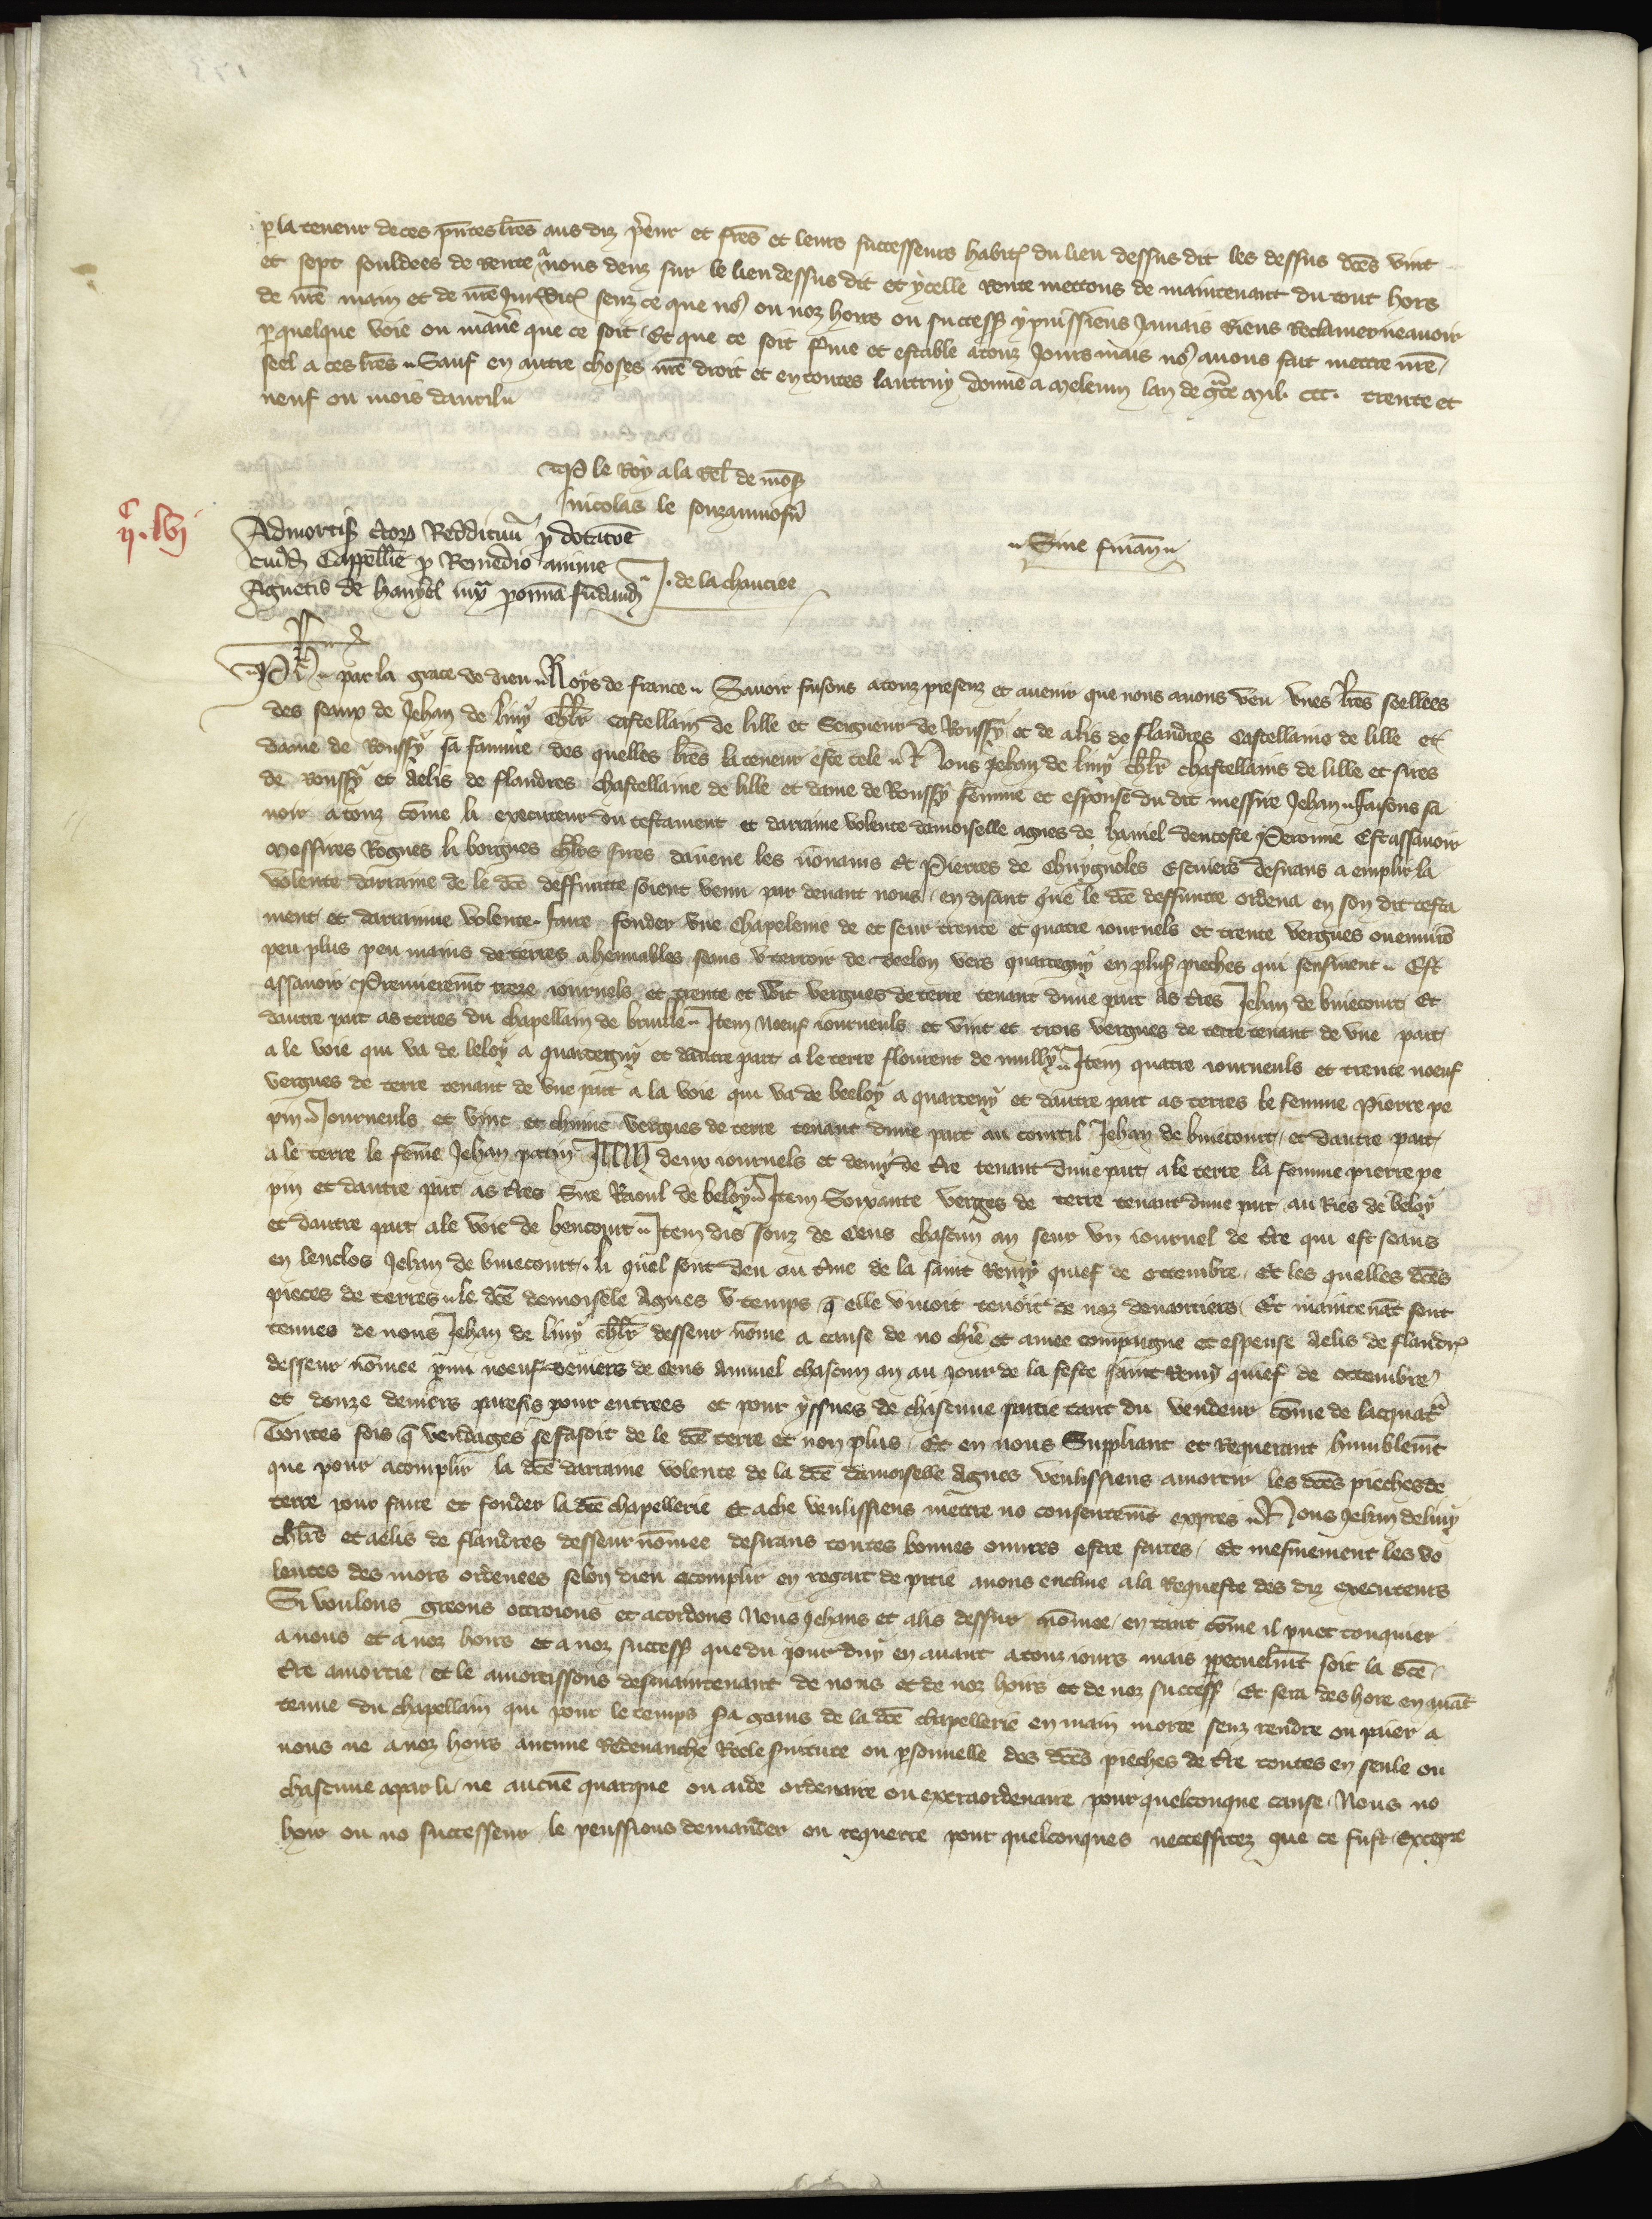 p la teneur de ces pñtes lres aus diz p̃eur et fres et leurs successeurs habit̃ du lieu dessus dit les dessus dc̃es vint
et sept souldees de rente a nous deuz sur le lieu dessus dit et ycelle rente mettons de maintenant du tout hors
de nr̃e main et de nr̃e Jurẽdict̃ senz ce que nos ou noz hoirs ou success̃ y puissiens Jamais riens reclamer ne avoir
p quelque voie ou maniẽ que ce soit Et que ce soit ferme et estable a touz Jours mais nos avons fait mettre nr̃e
seel a ces lres Sauf en autre choses nr̃e droit et en toutes lautruy donne a Meleun lan de gr̃ce Mil ccc trente et
neuf ou mois davril
P le Roy a la rel̃ de mons̃
Nicolas le
ii^c lvi
Admortis̃ c̃tor̃ Reddituũ p dotac̃oe
cuiusd̃ Cappell̃ie p Remedio anime
Agnetis de hangel
J. de la chaucee
Sine finañ
Ph̃ par la grace de dieu Roys de france Savoir faisons a touz presenz et avenir que nous avons veu unes lres seellees
des seaux de Jehan de liny chl̃r castellain de lille et Seigneur de Roussy et de alis de flandres castellaine de lille et
dame de Roussy sa famme des quelles lres la teneur este tele Nous Jehan de liny chl̃r chastellains de lille et sires
de roussy et Aelis de flandres chastellaine de lille et dame de Roussy femme et espouse du dit messire Jehan faisons sa
voir a touz cõme li executeur du testament et darraine volente damoiselle agnes de haniel dencoste Peronne Est assavoir
Messires Rogues li borgues chl̃rs sires davene les nonains Et Pierres de Chuygnoles Escuiers desirans a emplir la
volente darraine de le dc̃e deffuncte soient venu par devant nous en disant que le dc̃e deffuncte ordena en son dit testa
ment et darrainne volente faire fonder une chapelenie de et seur trente et quatre iournels et trente vergues ou environ
peu plus peu mains de terres ahennables seans u terroir de beeloy vers quartegny en plus̃ pieches qui sensivent Est
assavoir Premierem̃t treze iournels et trente et wit vergues de terre tenant dune part As tr̃es Jehan de biiecourt Et
dautre part as terres du chapellain de brueille Item Noeuf iourneuls et vint et trois vergues de terre tenant de une part
a le voie qui va de leloy a quartegny et dautre part a le terre flourent de mully Item quatre iourneuls et trente noeuf
vergues de terre tenant de une part a la voie qui va de beeloy a quarteny et dautre part as terres le femme Pierre pe
pin Iourneuls et vint et chiunc vergues de terre tenant dune part au courtil Jehan de biiecourt et dautre part
a le terre le fẽme Jehan patin Item deux iournels et demy de tr̃e tenant dune part a le terre la femme pierre pe
pin et dautre part as tr̃es Sire Raoul de beloy Item Soixante verges de terre tenant dune part au Ries de beloy
et dautre part a le voie de bencourt Item dis souz de cens chascun an seur un iournel de tr̃e qui est seans
en lenclos Jehan de biiecourt li quel sont deu au t̃me de la saint Remy quief de octembre Et les quelles dc̃es
pieces de terres le dc̃e demoisele Agnes u temps q̃ elle vivoit tenoit de noz devantiers Et maintenãt sont
tenues de nous Jehan de liny chl̃r desseur nõme a cause de no chiẽ et amee compaigne et espeuse Aelis de flandr̃
desseur nõmee noeuf deniers de cens annuel chascun an au jour de la feste saint Remy quief de octembre
et douze deniers paresis pour entrees et pour yssues de chascune partie tant du vendeur cõme de lacquat̃r
Toutes fois q̃ vendages se fasoit de le dc̃e terre et non plus Et en nous Suppliant et requerant humblem̃t
que pour acomplir la dc̃e darraine volente de la dc̃e damoiselle Agnes veulissiens amortir les dc̃es pieches de
terre pour faire et fonder la dc̃e chapellerie Et a che veulissiens mettre no consentem̃t expres Nous Jehan de liny
chl̃rs et aelis de flandres desseur nõmee desirans toutes bonnes ouvres estre faites Et mesmement les vo
lentes des mors ordenees selon dieu acomplir en regart de pitie avons encline a la Requeste des diz executeurs
Si voulons greons ottroions et acordons Nous Jehans et alis dessur nõmee en tant cõme il puet touquier
a nous et a noz hoirs et a noz success̃ que du jour duy en avant a touz iours mais ppetuelm̃t soit la dc̃e
tr̃e amortie et le amortissons des maintenant de nous et de noz hoirs et de noz success̃ Et sera des hore en avãt
tenue du chapellain qui pour le temps sa goirs de la dc̃e chapellerie en main morte senz rendre ou paier a
nous ne a noz hoirs aucune Redevanche Reele ou p̃sonnelle des dc̃es pieches de tr̃e toutes en seule ou
chascune apar li ne aucuñe quarque ou aide ordenaire ou extraordenaire pour quelconque cause Nous no
hoir ou no successeur le peussions demander ou requerre pour quelconques neccessitez que ce fust Excepte